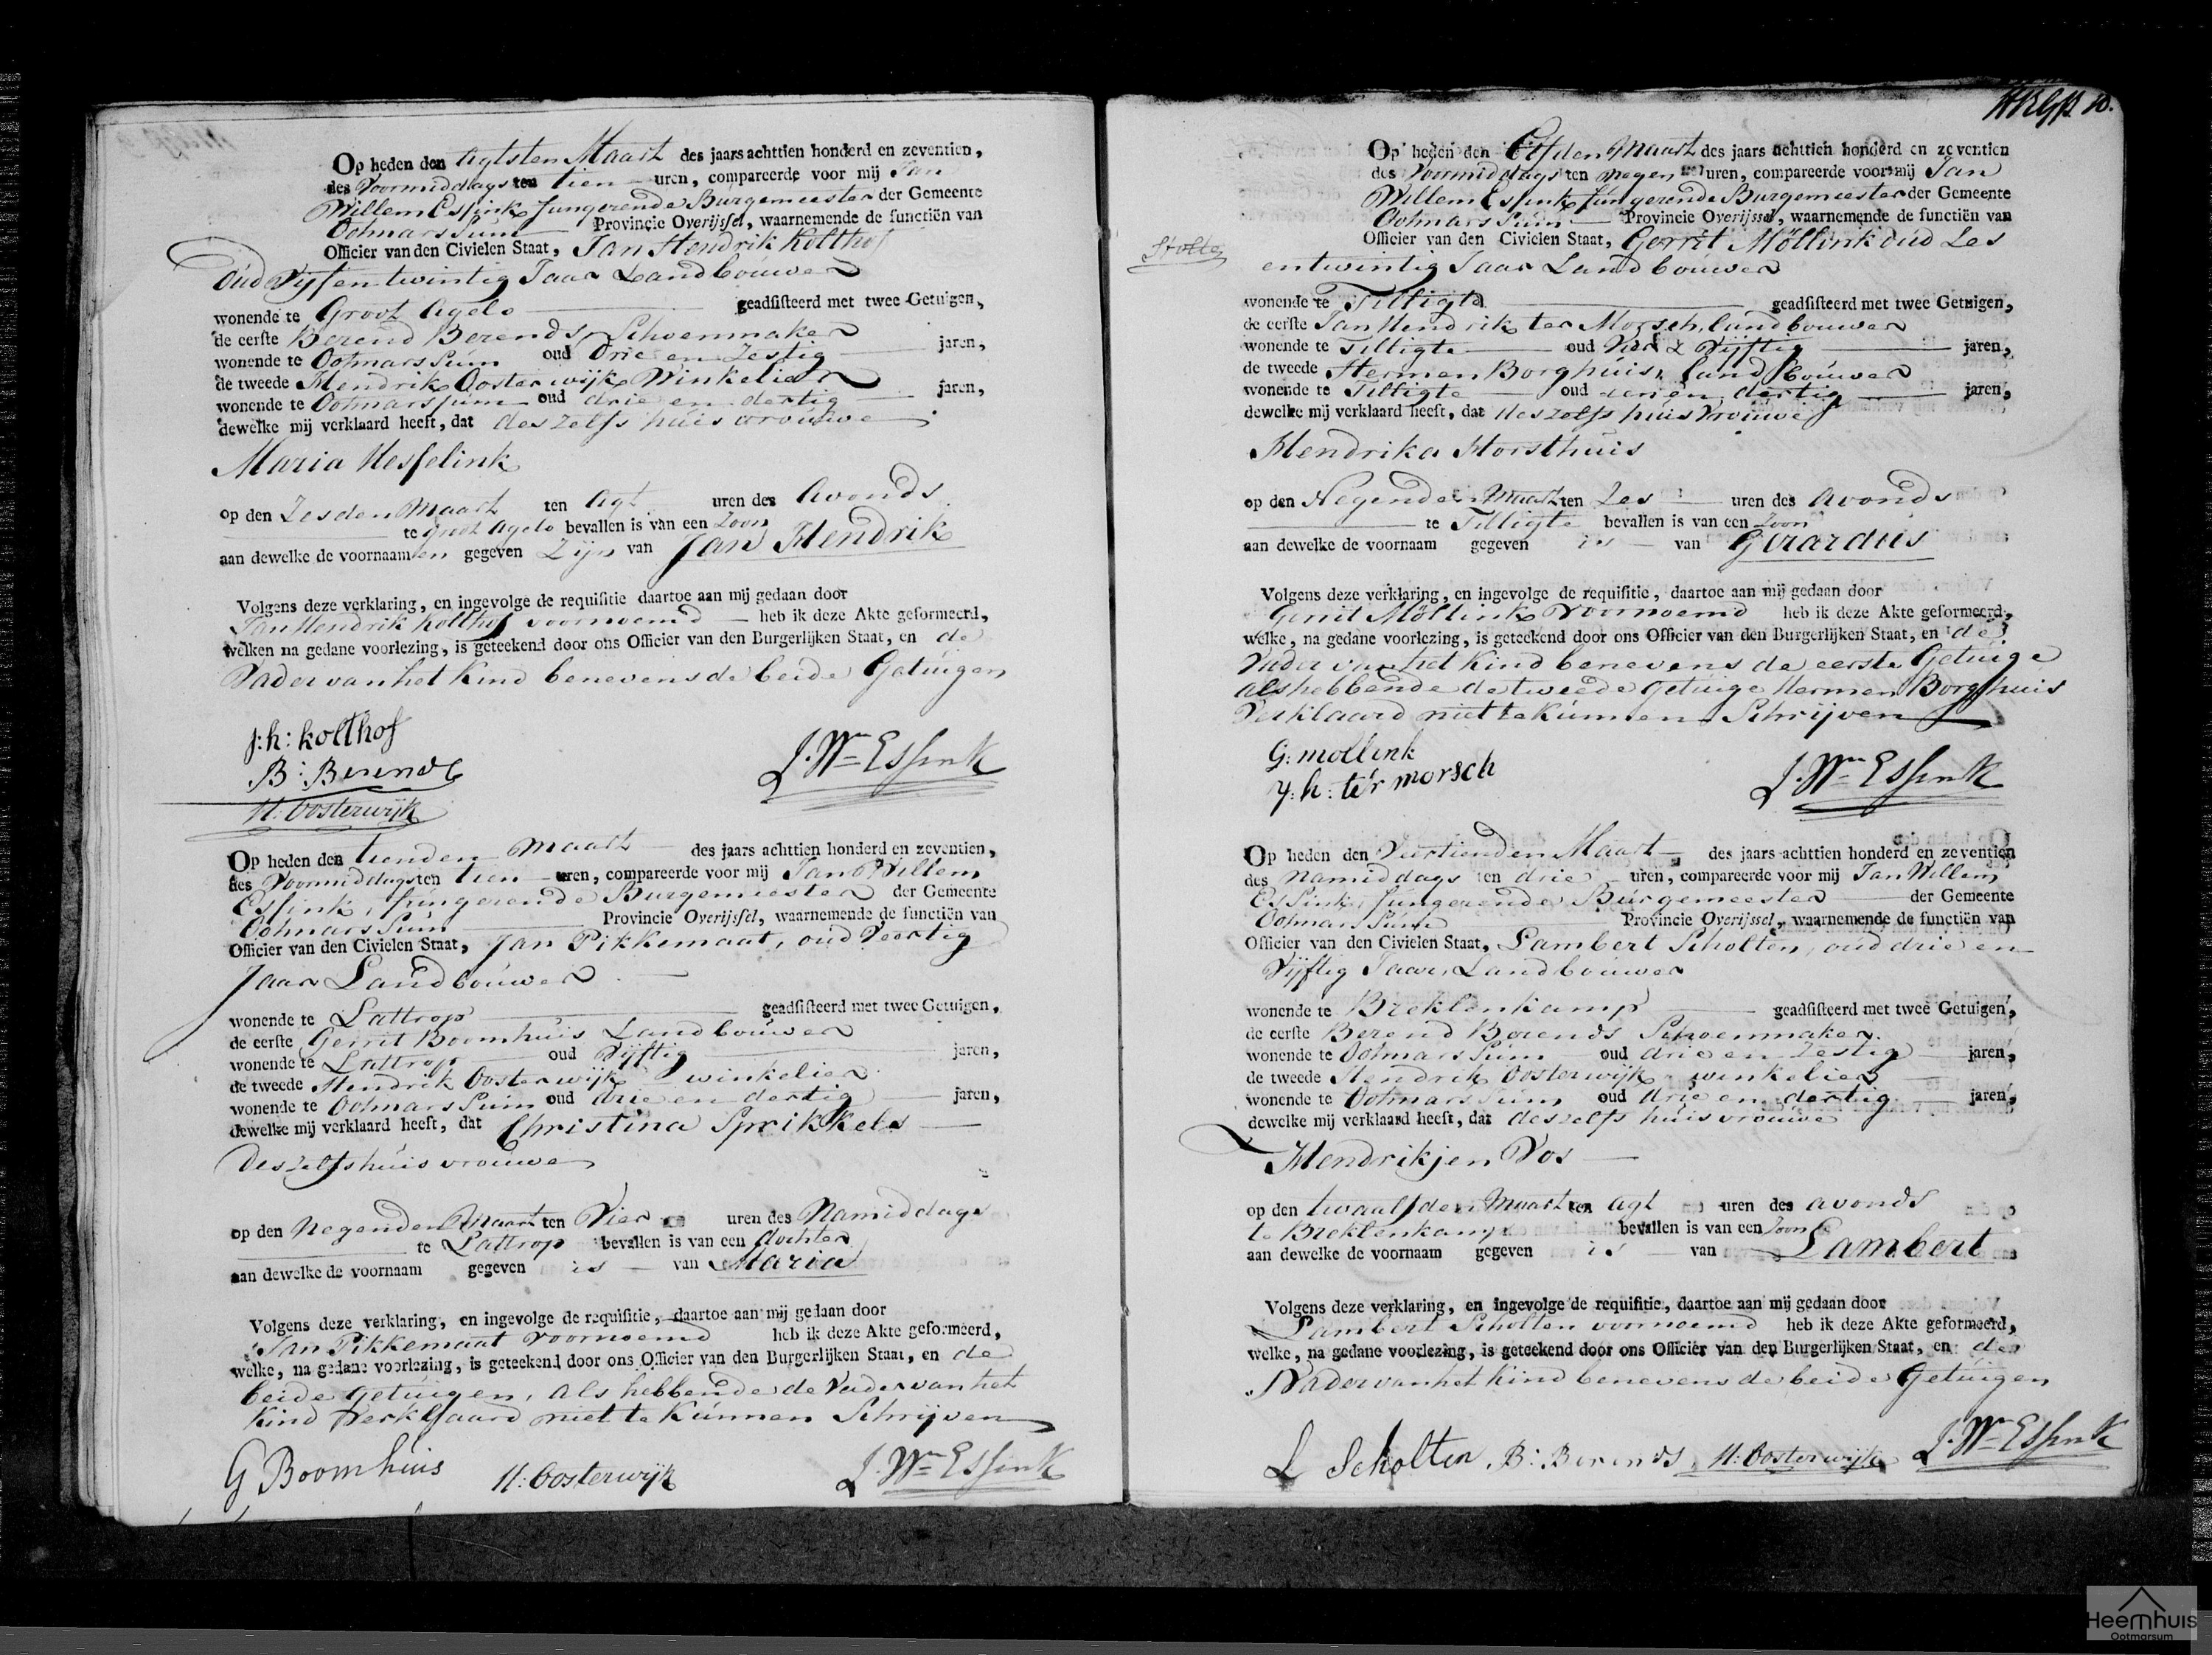 Op heden den Agtsten Maart des jaars achttien honderd en zeventien,
des Voormiddags ten tien uren, compareerde voor mij Jan
Willem Essink fungerende Burgemeester der Gemeente
Ootmarssum Provincie Overijssel, waarnemende de functiën van
Officier van den Civielen Staat, Jan Hendrik Kolthof
Oud Vijf en twintig Jaar Landbouwer
wonende te Groot Agelo geadsisteerd met twee Getuigen,
de eerste Berend Berends, Schoenmaker
wonende te Ootmarssum oud Drie en Zestig jaren,
de tweede Hendrik Oosterwijk Winkelier
wonende te Ootmarssum oud drie en dertig jaren,
dewelke mij verklaard heeft, dat deszelfs huisvrouwe
Maria Hesselink
op den Zesden Maart ten Agt uren des Avonds
te groot Agelo bevallen is van een Zoon
aan dewelke de voornaamen gegeven Zijn van Jan Hendrik
Volgens deze verklaring, en ingevolge de requisitie daartoe aan mij gedaan door
Jan Hendrik Kolthof voornoemd heb ik deze Akte geformeerd,
welken na gedane voorlezing, is geteekend door ons Officier van den Burgerlijken Staat, en de
Vader van het Kind benevens de beide Getuigen
j: h: kolthof
B: Berends
J. Wm Essink
H: Oosterwijk
Op heden den tienden Maart des jaars achttien honderd en zeventien,
des Voormiddags ten tien uren, compareerde voor mij Jan Willem
Essink, fungerende Burgemeester der Gemeente
Ootmarssum Provincie Overijssel, waarnemende de functiën van
Officier van den Civielen Staat, Jan Pikkemaat, oud Veertig
Jaar Landbouwer
wonende te Lattrop geadsisteerd met twee Getuigen,
de eerste Gerrit Boomhuis Landbouwer
wonende te Lattrop oud Vijftig jaren,
de tweede Hendrik Oosterwijk winkelier
wonende te Ootmarssum oud drie en dertig jaren,
dewelke mij verklaard heeft, dat Christina Sprikkels
Deszelfs huisvrouwe
op den Negenden Maart ten Vier uren des Namiddags
te Lattrop bevallen is van een dochter
aan dewelke de voornaam gegeven is van Maria
Volgens deze verklaring, en ingevolge de requisitie, daartoe aan mij gedaan door
Jan Pikkemaat voornoemd heb ik deze Akte geformeerd,
welke, na gedane voorlezing, is geteekend door ons Officier van den Burgerlijken Staat, en de
beide getuigen, als hebbende de Vader van het
Kind Verklaard niet te Kunnen Schrijven
G Boomhuis H: Oosterwijk J. Wm Essink
10.
Op heden den Elfden Maart des jaars achttien honderd en zeventien
des Voormiddags ten negen uren, compareerde voor mij Jan
Willem Essink fungerende Burgemeester der Gemeente
Ootmarssum Provincie Overijssel, waarnemende de functiën van
Officier van den Civielen Staat, Gerrit Möllink oud Zes
en twintig Jaar Landbouwer
wonende te Tilligte geadsisteerd met twee Getuigen,
de eerste Jan Hendrik ter Morsch, landbouwer
wonende te Tilligte oud Vier & Vijftig jaren,
de tweede Hermen Borghuis, land bouwer
wonende te Tilligte oud en dertig jaren,
dewelke mij verklaard heeft, dat deszelfs huisvrouwe
Hendrika Horsthuis
op den Negenden Maart ten Zes uren des Avonds
te Tilligte bevallen is van een Zoon
aan dewelke de voornaam gegeven is van Gerardus
Volgens deze verklaring, en ingevolge de requisitie, daartoe aan mij gedaan door
Gerrit Möllink Voornoemd heb ik deze Akte geformeerd,
welke, na gedane voorlezing, is geteekend door ons Officier van den Burgerlijken Staat, en de
Vader van het Kind benevens de eerste Getuige
als hebbende de tweede getuige Hermen Borghuis
Verklaard niet te Kunnen Schrijven
G: mollink
J: h: ter morsch
J. Wm Essink
Op heden den Veertienden Maart des jaars achttien honderd en zeventien
des Namiddags ten drie uren, compareerde voor mij Jan Willem
Essink, fungerende Burgemeester der Gemeente
Ootmarssum Provincie Overijssel, waarnemende de functiën van
Officier van den Civielen Staat, Lambert Scholten, oud drie en
Vijftig Jaar, Landbouwer
wonende te Breklenkamp geadsisteerd met twee Getuigen,
de eerste Berend Berends Schoenmaker
wonende te Ootmarssum oud drie en Zestig jaren,
de tweede Hendrik Oosterwijk winkelier
wonende te Ootmarssum oud drie en dertig jaren,
dewelke mij verklaard heeft, dat deszelfs huisvrouwe
Hendrikjen Vos
op den twaalfden Maart ten agt uren des avonds
te Breklenkamp bevallen is van een Zoon
aan dewelke de voornaam gegeven is van Lambert
Volgens deze verklaring, en ingevolge de requisitie, daartoe aan mij gedaan door
Lambert Scholten voornoemd heb ik deze Akte geformeerd,
welke, na gedane voorlezing, is geteekend door ons Officier van den Burgerlijken Staat, en de
Vader van het kind benevens de beide Getuigen
L Scholten B: Berends H: Oosterwijk J. Wm Essink
Heemhuis
Ootmarsum